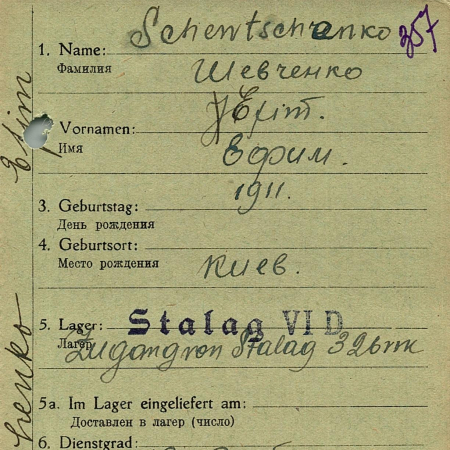 Schewtschenko 357
1. Name:
Фамилия Шевченко
Efim.
Vornamen:
Имя Ефим.
1911.
3. Geburtstag:
День рождения
4. Geburtsort:
Место рождения Киев.
5. Lager: Stalag VI D
Лагер Zugang von Stalag 326
5a. Im Lager eingeliefert am:
Доставлен в лагер (число)
6. Dienstgrad:
Efim
henko